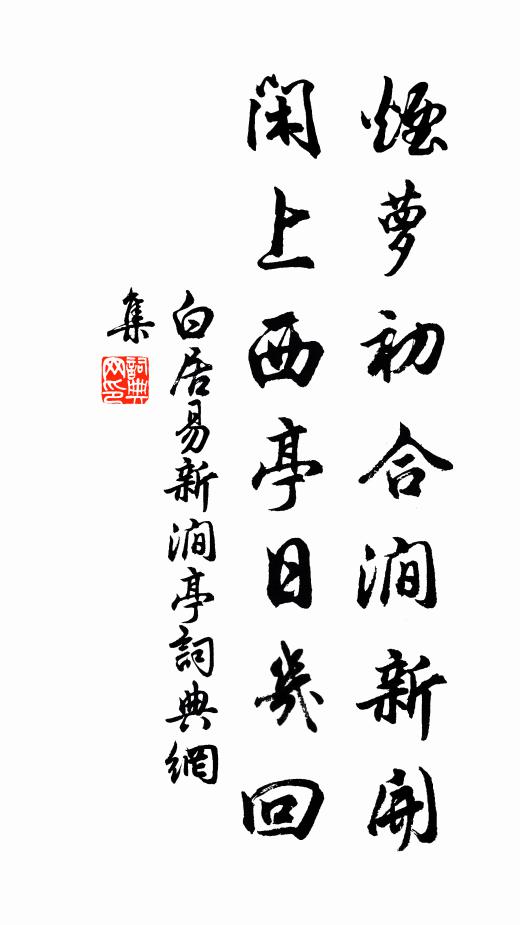 煙蘿初合澗新開
閑上西亭日幾回
白居易新澗亭詞典網
集
詞典
网印